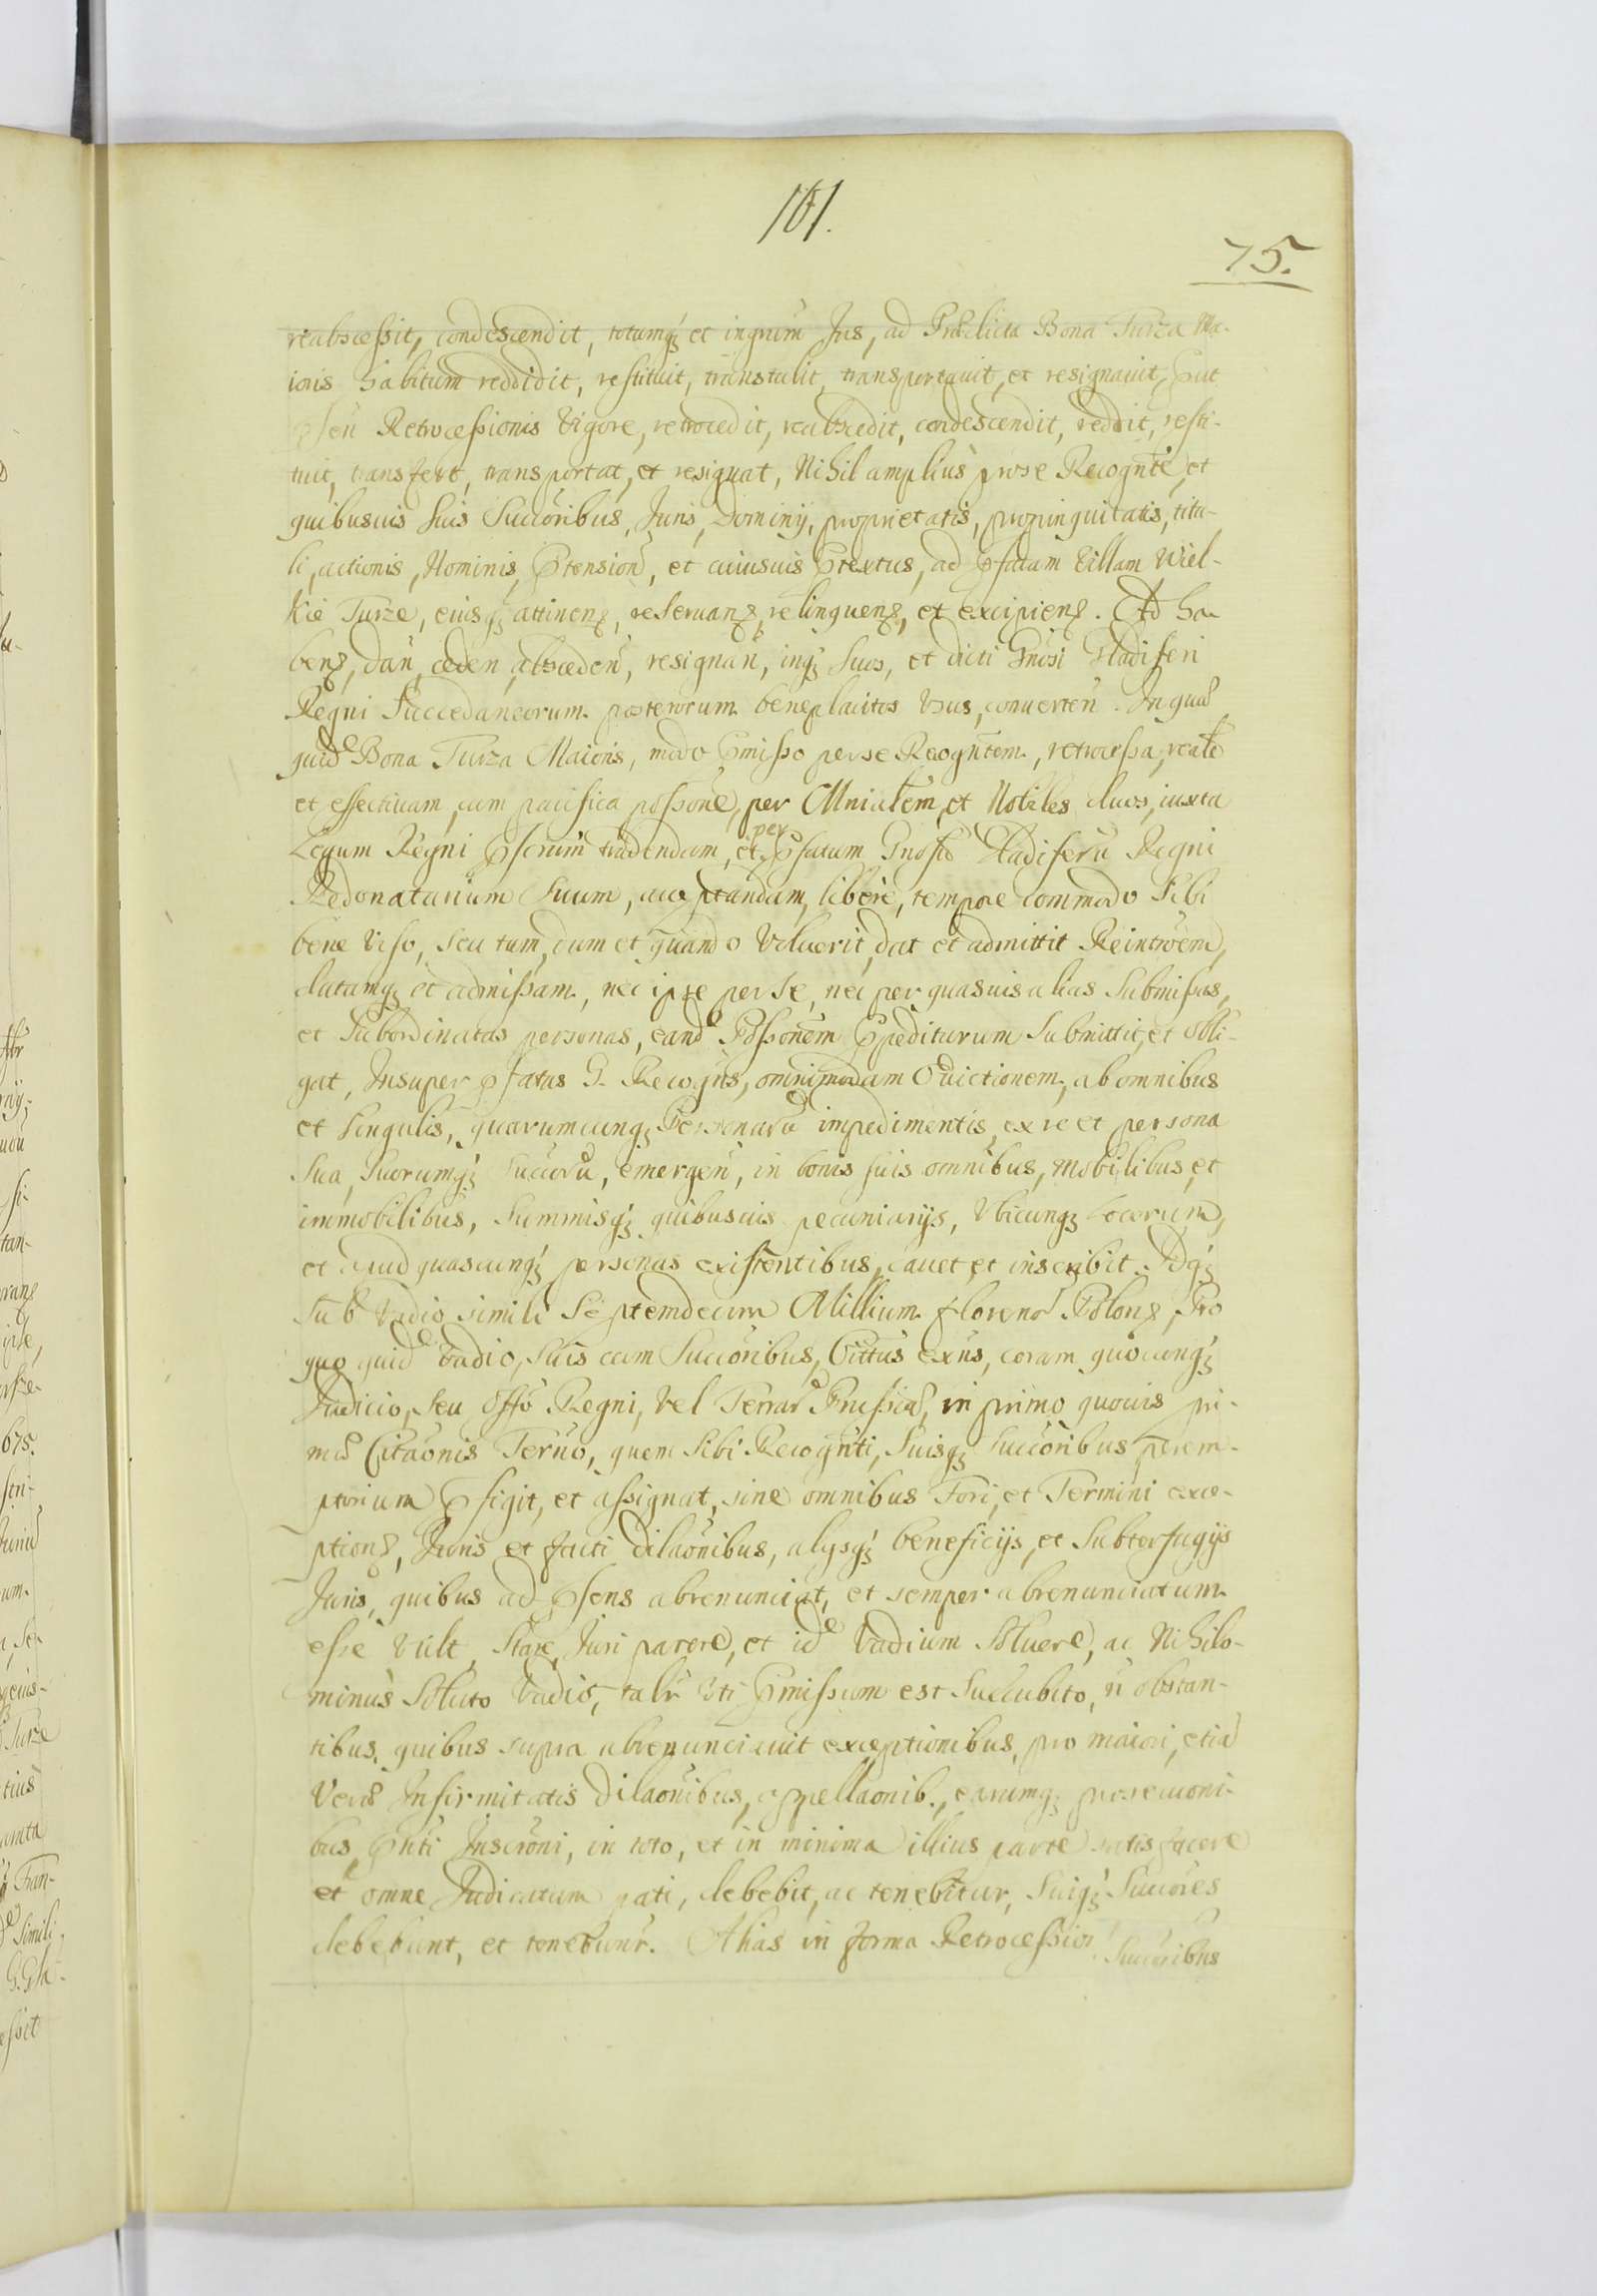 101.
75.
reabscessit, condescendit, totumq; et integrum Jus, ad Prædicta Bona Turza Ma-
ioris habitum reddidit, restituit, transtulit, transportavit, et resignavit, put
psen Retrocessionis Vigore, retrocedit, reabscedit, condescendit, reddit, resti-
tuit, transfert, transportat, et resignat, Nihil amplius prose Recognte, et
quibusuis suis Succoribus, Juris, Dominÿ, proprietatis, propinquitatis, titu-
li, actionis, Nominis, ptension, et cuiusuis ptextus, ad pfatam Villam Wiel-
kie Turze, eiusq; attinen, reseruan, relinquen, et excipien. Ad ha-
ben, dan, ceden, absceden, resignan, inq; suos, et dicti Gnosi Gladiferi
Regni Succedaneorum posterorum beneplacitos Vsus, conuerten. In quæ
quid Bona Turza Maioris, modo pmisso per se Recogntem, retrocessa, realē
et effectiuam, cum pacifica possone, per Mnialem, et Nobiles duos, iuxta
Legum Regni pscrum tradendam, et per pfatum Gnosū Gladiferū Regni
Redonatarium Suum, acceptandam, libere, tempore commodo Sibi
bene Viso, seu tum, dum et quando Voluerit, dat et admittit Reintroem,
datamq; et admissam, nec ipse per Se, nec per quasuis alias Submissas,
et Subordinatas personas, eand Possonem ppediturum Submittit, et obli-
gat, Insuper pfatus G. Recogns, omnimodam Euictionem, ab omnibus
et singulis, quarumcunq; Personarū impedimentis, ex re et persona
Sua, Suorumq; Succorū, emergen, in bonis suis omnibus, mobilibus, et
immobilibus, Summisq; quibusuis pecuniarÿs, Vbicunq; Locorum,
et apud quascunq; personas existentibus, cauet et inscribit. Idq;
sub Vadio simili Septemdecim Millium floreno Polon, Pro
quo quid Vadio, Suis cum Succoribus, Cittus exns, coram quocunq;
Judicio, seu Offo Regni, Vel Terrar Prussiæ, in primo quouis pri-
mæ Citaonis Terno, quem Sibi Recognti, Suisq; Succoribus perem-
ptorium pfigit, et assignat, sine omnibus Fori, et Termini exce-
ption, Juris et facti dilaonibus, alÿsq; beneficÿs, et Subterfugÿs
Juris, quibus ad psens abrenunciat, et semper abrenunciatum
esse Vult, Stare, Juri parere, et id Vadium Soluere, ac Nihilo-
minus Soluto Vadio, talr Vti pmissum est Succubito, n obstan-
tibus quibus supra abrenunciauit exceptionibus, pro maiori, etiā
Veræ Infirmitatis Dilaonibus, appellaonib., earumq; prosecuoni-
bus, pnti Inscroni, in toto, et in minima illius parte satisfacere
et omne Judicatum pati, debebit, ac tenebitur, Suiq; Succores
debebunt, et tenebunr. Alias in forma Retrocession
Succoribus